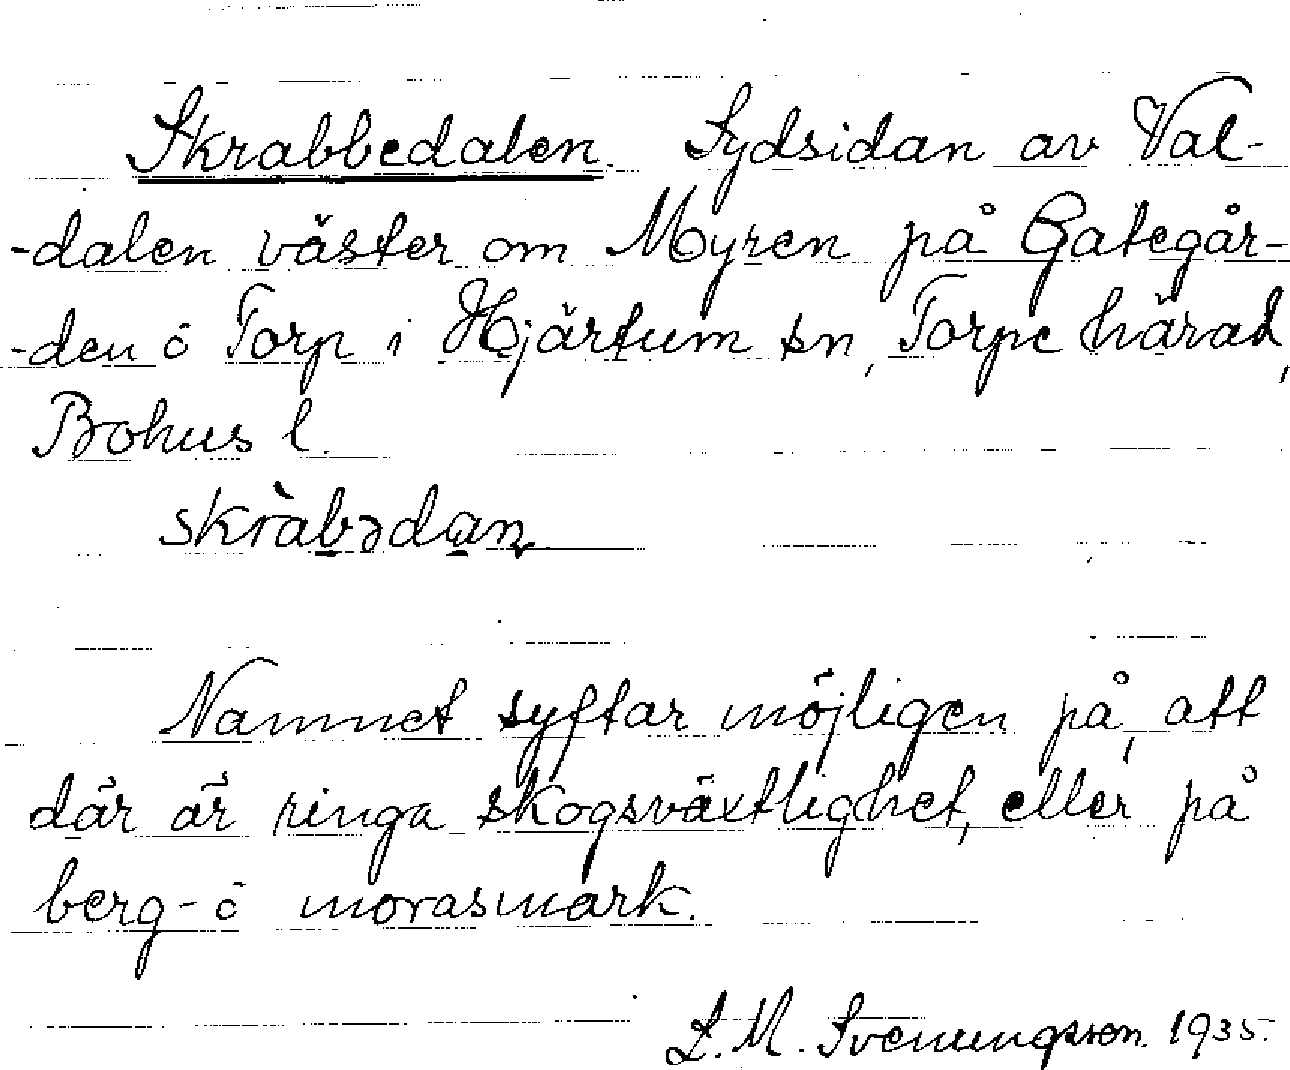 Skrabbedalen. Sydsidan av Val-
-dalen väster om Myren på Gategår-
-den ö Torp i Hjärtum sn, Torpe härad,
Bohus l.
skràbədan
Namnet syftar möjligen på, att
där är ringa skogsväxtlighet, eller på
berg- ö morasmark.
L. M. Svenungsson. 1935.